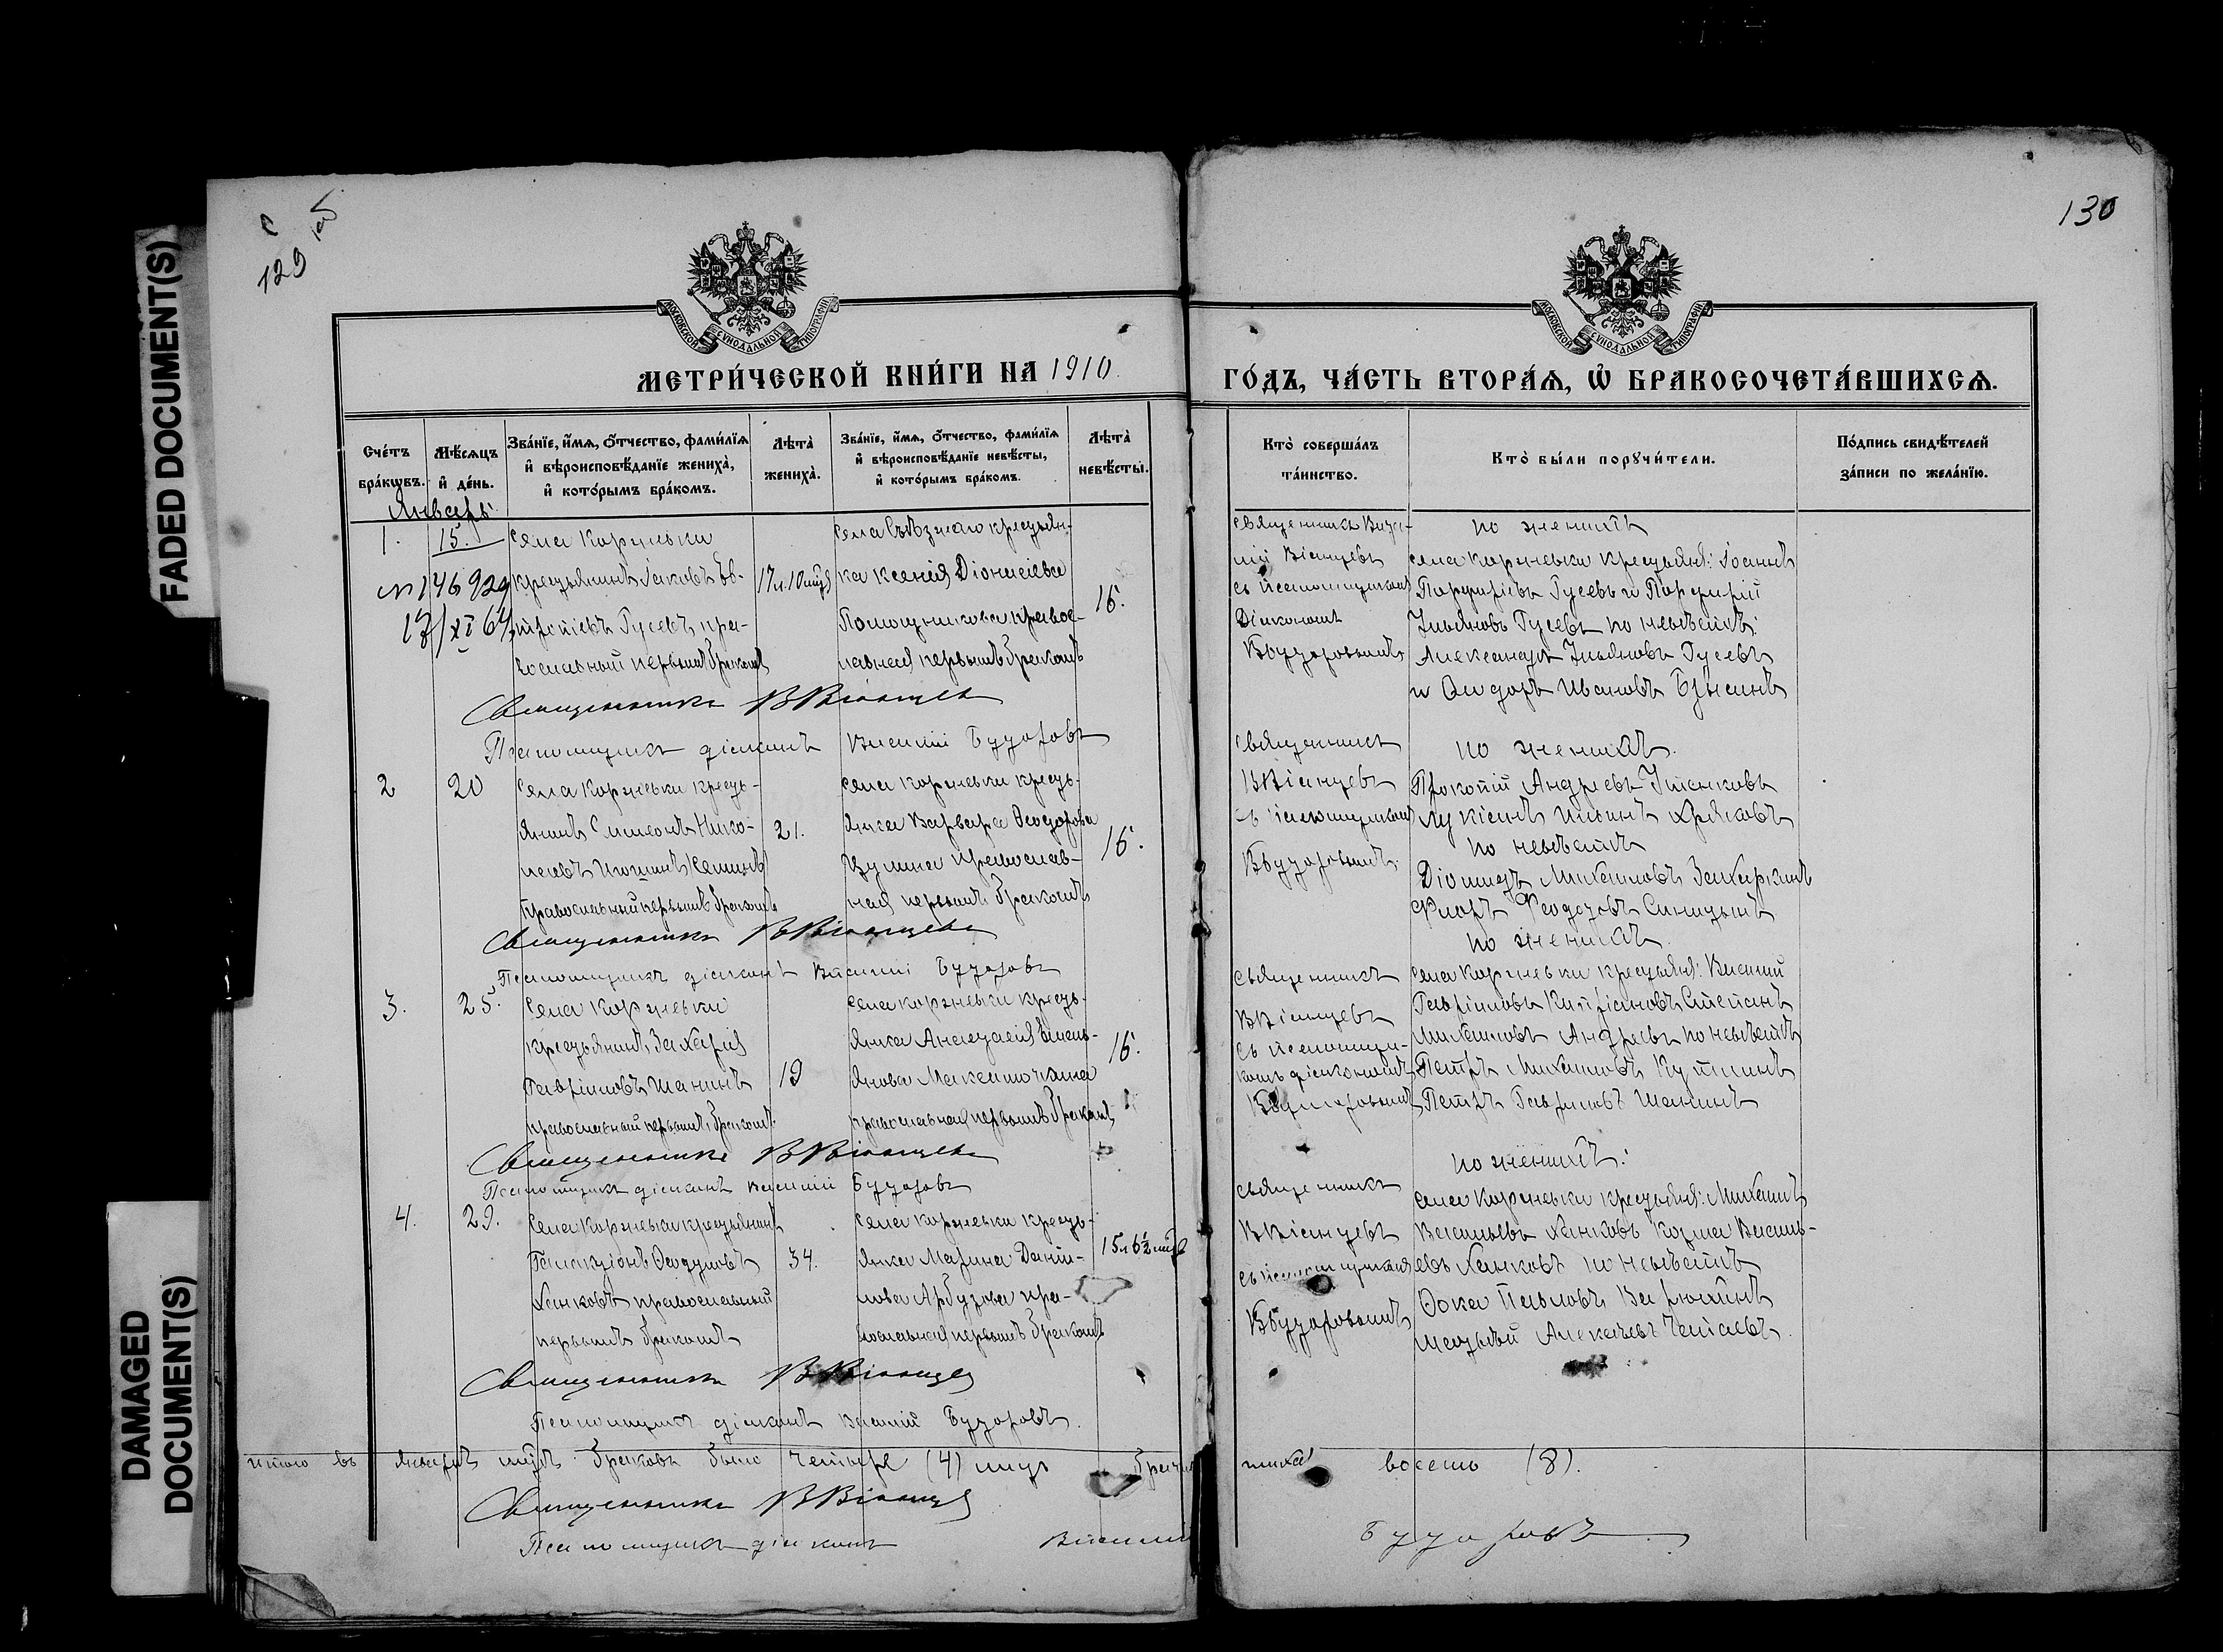 FADED DOCUMENT(S)
DAMAGED
DOCUMENT(S)
129
130
МОСКОВСКОЙ СѴНОДАЛЬНОЙ ТИПОГРАФІИ
МОСКОВСКОЙ СѴНОДАЛЬНОЙ ТИПОГРАФІИ
МЕТРИ́ЧЕСКОЙ КНИ́ГИ НА 1910
ГО́ДЪ, ЧА́СТЬ ВТОРА́Ѧ, Ѽ БРАКОСОЧЕТА́ВШИХСѦ.
Сче́тъ бра́кѡвъ.
Мѣ́сѧцъ и҆ де́нь.
Зва́нїе, и҆́мѧ, ѻ҆́тчество, фами́лїѧ и҆ вѣроисповѣ́данїе жениха̀, и҆ кото́рымъ бра́комъ.
Лѣта̀ жениха̀.
Зва́нїе, и҆́мѧ, ѻ҆́тчество, фами́лїѧ и҆ вѣроисповѣ́данїе невѣ́сты, и҆ кото́рымъ бра́комъ.
Лѣта̀ невѣ́сты.
Кто̀ соверша́лъ та́инство.
Кто̀ бы́ли порꙋчи́тели.
По́дпись свидѣ́телей за́писи по жела́нїю.
Январь
1.
15.
№ 146929
17/XI 67
Села Коржевки
крестьянинъ Іаковъ Ев-
тропіевъ Гусевъ, пра-
вославный первымъ бракомъ
17 л. 10 мцъ
Села Съѣзжаго крестьян-
ка Ксенія Діонисіева
Помощникова правос-
лавная первымъ бракомъ
16.
Священникъ
Віанцевъ
съ псаломщикомъ
Діакономъ
В Бузоровымъ
по женихѣ
села Коржевки крестьяня: Іоаннъ
Порфирьевъ Гусевъ и Порфирій
Ульяновъ Гусевъ по невѣстѣ:
Александръ Ульяновъ Гусевъ
и Ѳидоръ Ивановъ
Священникъ В Віанцевъ
Псаломщикъ діаконъ Василій Бузоровъ
2
20
Села Коржевки кресть-
янинъ Симеонъ Нико-
лаевъ
православный первымъ бракомъ
21.
Села Коржевки кресть-
янка Варвара Ѳеодорова
православ-
ная первымъ бракомъ
16.
Священникъ
В Віанцевъ
съ псаломщикомъ
В Бузоровымъ
по женихѣ.
Прокопій Андреевъ
Лукіанъ Ильинъ Хряковъ
по невѣстѣ
Діомидъ Михаиловъ Захаркинъ
Флоръ Ѳеодоровъ Синицынъ
Священникъ В Віанцевъ
Псаломщикъ діаконъ Василій Бузоровъ
3.
25.
Села Коржевки
крестьянинъ Захарія
Гавріиловъ Шанинъ
православный первымъ бракомъ
19
Села Коржевки кресть-
янка Анастасія Емель-
янова
православная первымъ бракомъ
16.
Священникъ
В Віанцевъ
съ псаломщи-
комъ діакономъ
В Бузоровымъ
по женихѣ
села Коржевки крестьяня: Василій
Гавріиловъ Кипріановъ Степанъ
Михаиловъ Андреевъ по невѣстѣ
Петръ Михаиловъ
Петръ Гавриловъ Шанинъ
Священникъ В Віанцевъ
Псаломщикъ діаконъ Василій Бузоровъ
4.
29.
Села Коржевки крестьянинъ
Галактіонъ Ѳеодуловъ
Ханковъ православный
первымъ бракомъ
34.
Села Коржевки кресть-
янка Марина Даніи-
лова Арбузова пра-
вославная первымъ бракомъ
15 л 6½ мцъ
Священникъ
В Віанцевъ
съ псаломщикомъ
В Бузоровымъ
по женихѣ:
села Коржевки крестьяня: Михаилъ
Васильевъ Ханковъ Козма Василь-
евъ Ханковъ по невѣстѣ
Ѳока Павловъ
Алексѣевъ
Священникъ В Віанцевъ
Псаломщикъ діаконъ Василій Бузоровъ.
Итого въ Январѣ мцѣ браковъ было четыре (4) лицъ
восемь (8).
Священникъ В Віанцевъ
Псаломщикъ діаконъ Василій Бузоровъ